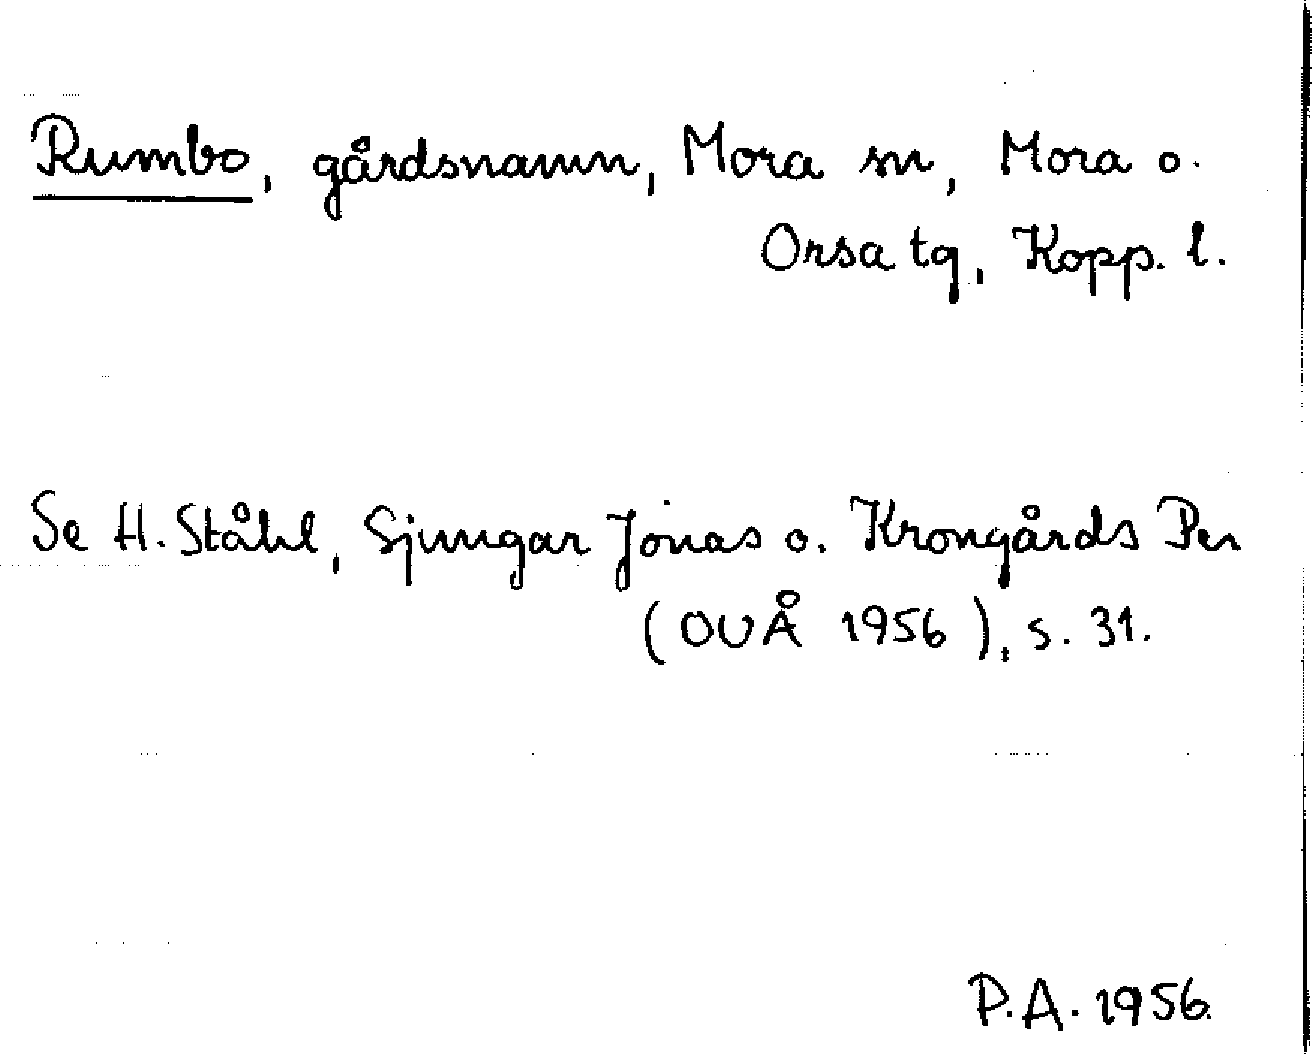 Rumbo, gårdsnamn, Mora sn, Mora o.
Orsa tg, Kopp. l.
Se H. Ståhl, Sjungar Jonas o. Krongårds Per
(OUÅ 1956), s. 31.
P.A. 1956.